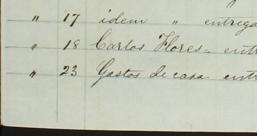 " 17 idem " entrega
" 18 Carlos Flores - entr
" 23 Gastos de casa entr